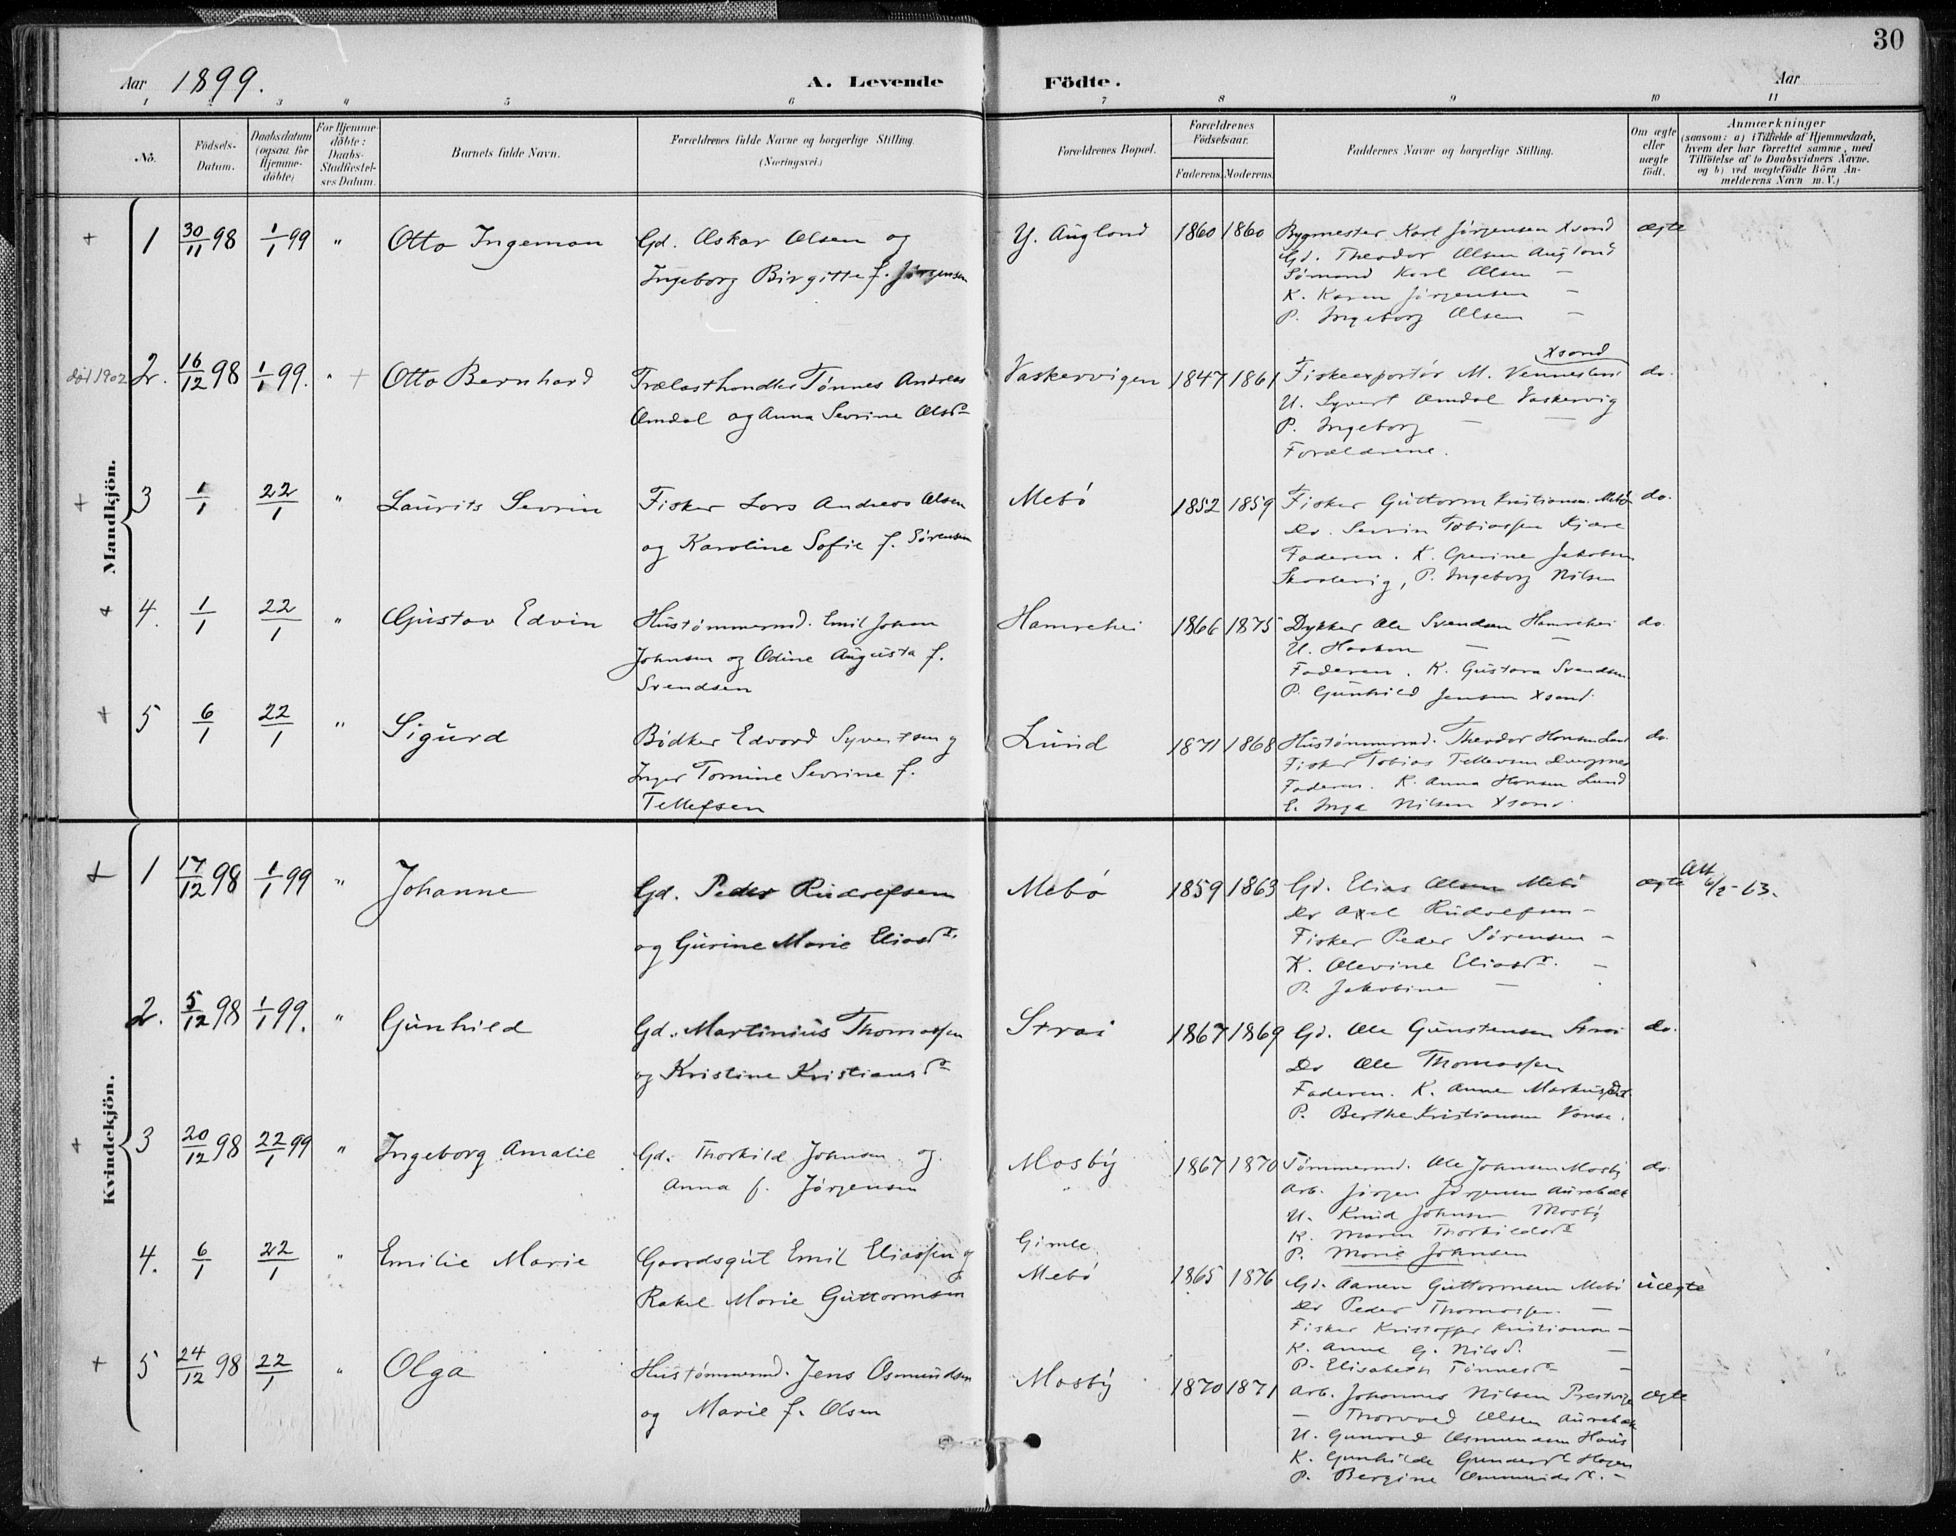 30
Aar 1899. A. Levende Födte. Aar
1 2 3 4 5 6 7 8 9 10 11
No. Födsels-Datum. Daabsdatum (ogsaa for Hjemmedöbte) For Hjemmedöbte: Daabs-Stadfæstelses Datum. Barnets fulde Navn. Forældrenes fulde Navne og borgerlige Stilling. (Næringsvei.) Forældrenes Bopæl. Forældrenes Födselsaar. Faderens. Moderens. Faddernes Navne og borgerlige Stilling. Om ægte eller uægte födt. Anmærkninger
(saasom: a) i Tilfælde af Hjemmedaab,
hvem der har forrettet samme, med
Tilföielse af to Daabsvidners Navne.
og b) ved uægtefödte Börn An-
melderens Navn m. V.)
Mandkjön.
+ 1 30/11 98 1/1 99 " Otto Ingeman Gd. Oskar Olsen og Y. Augland 1860 1860 Bygmester Karl Jörgensen Xsand ægte
Ingeborg Birgitte f. Jörgensen Gd. Theodor Olsen Augland
Sömand Karl Olsen —
K. Karen Jörgensen —
P. Ingeborg Olsen —
död 1902 2. 16/12 98 1/1 99. " + Otto Bernhard Trælasthandler Tönnes Andreas Vaskervigen 1847 1861 Fiskeexportör M. Venneslan Xsand do.
Omdal og Anna Sevrine Olsdr U. Syvert Omdal Vaskervig
P. Ingeborg — —
Forældrene.
+ 3 1/1 22/1 " Laurits Sevrin Fisker Lars Andreas Olsen Mebö 1852 1859 Fisker Guttorm Kristiansen Mebö do.
og Karoline Sofie f. Sörensen Do. Sevrin Tobiassen Kjære
Faderen. K. Jakobsen
P. Ingeborg Nilsen
+ 4. 1/1 22/1 " Gustav Edvin Hustömmermd. Emil Johan Hamrehei 1866 1875 Dykker Ole Svendsen Hamrehei do.
Johnsen og Odine Augusta f. U. Haakon —
Svendsen Faderen. K. Gustava Svendsen
P. Gunhild Jensen Xsand.
+ 5 6/1 22/1 " Sigurd Bödker Edvard Syvertsen og Lund 1871 1868 Hustömmermd. Theodor Hansen Lund do.
Inger Tomine Sevrine f. Fisker Tobias Tellefsen Dvergsnes
Tellefsen Faderen. K. Anna Hansen Lund
E. Inga Nilsen Xsand.
Kvindekjön.
+ 1 17/12 98 1/1 99 " Johanne Gd. Peder Rudolfsen Mebö 1859 1863 Gd. Elias Olsen Mebö ægte Att 6/2-63.
og Gurine Marie Eliasdr. Do Axel Rudolfsen —
Fisker Peder Sörensen —
K. Olevine Eliasdr. —
P. Jakobine —
2. 5/12 98 1/1 99. " Gunhild Gd. Martinius Thomassen Strai 1867 1869 Gd. Ole Gunstensen Strai do.
og Kristine Kristiansdr Do Ole Thomassen
Faderen. K. Anne
P. Berthe Kristiansen
+ 3 20/12 98 22/1 99 " Ingeborg Amalie Gd. Thorkild Johnsen og Mosby 1867 1870 Tömmermd. Ole Johnsen Mosby do
Anna f. Jörgensen Arb. Jörgen Jörgensen Aurebæk
U. Knud Johnsen Mosby
K. Maren Thorkildsdr
P. Marie Johnsen
4. 6/1 22/1 " Emilie Marie Gaardsgut Emil Eliassen og Gimle
Rakel Marie Guttormsen Mebö 1865 1876 Gd. Aanen Guttormsen Mebö uægte
Do Peder Thomassen —
Fisker Kristoffer Kristiansen —
K. Anne G. Nilsd. —
P. Elisabeth Tönnesdr —
+ 5 24/12 98 22/1 " Olga Hustömmermd. Jens Osmundsen Mosby 1870 1871 Arb. Johannes Nilsen ægte
og Marie f. Olsen — Thorvald Olsen Aurebæk
U. Gunvald Osmundsen
K. Gunhilde
P. Bergine Osmundsdr. —